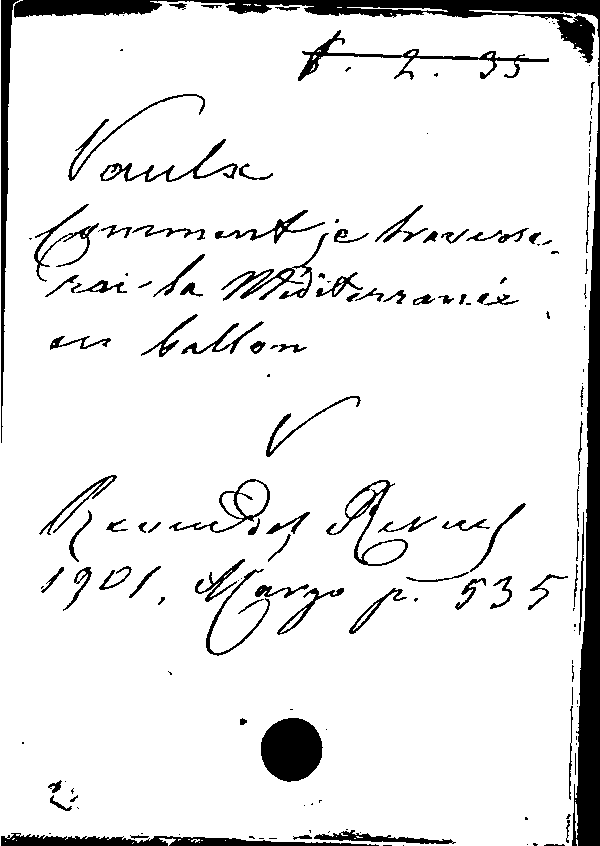 V. 2. 35
Vaulx
Comment je traverse-
rai la Méditerranée
en ballon
V
Revue des Revues
1901, Marzo p. 535